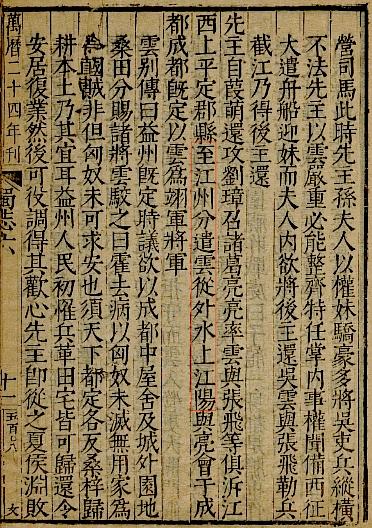 營司馬此時先主孫夫人以權妹驕豪多將吳吏兵縱橫
不法先主以雲嚴重必能整齊特任掌內事權聞備西征
大遣舟船迎妹而夫人內欲將後主還吳雲與張飛勒兵
截江乃得後主還
先主自葭萌還攻劉璋召諸葛亮亮率雲與張飛等俱泝江
西上平定郡縣至江州分遣雲從外水上江陽與亮會于成
都成都既定以雲為翊軍將軍
雲別傳曰益州既定時議欲以成都中屋舍及城外園地
桑田分賜諸將雲駮之曰霍去病以匈奴未滅無用家為
國賊非但匈奴未可求安也須天下都定各反桑梓歸
耕本土乃其宜耳益州人民初罹兵革田宅皆可歸還令
安居復業然後可役調得其歡心先主即從之夏侯淵敗
萬曆二十四年刊
蜀志六
十一